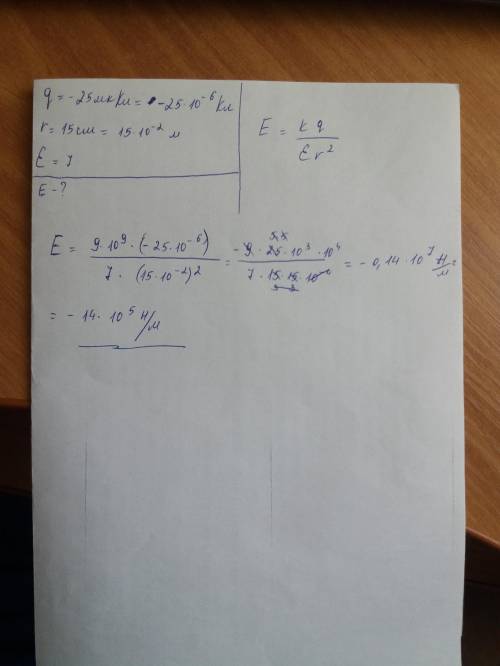 q = -25мкКл = -25·10⁻⁶ Кл
r = 15см = 15·10⁻² м
Ɛ = 7
E - ?
E = kq / Ɛr²
E = 9·10⁹·(-25·10⁻⁶) / 7·(15·10⁻²)² = -9·25·10³·10⁴ / 7·15·15 = -0,14·10⁷ Н/м =
= -14·10⁵ Н/м